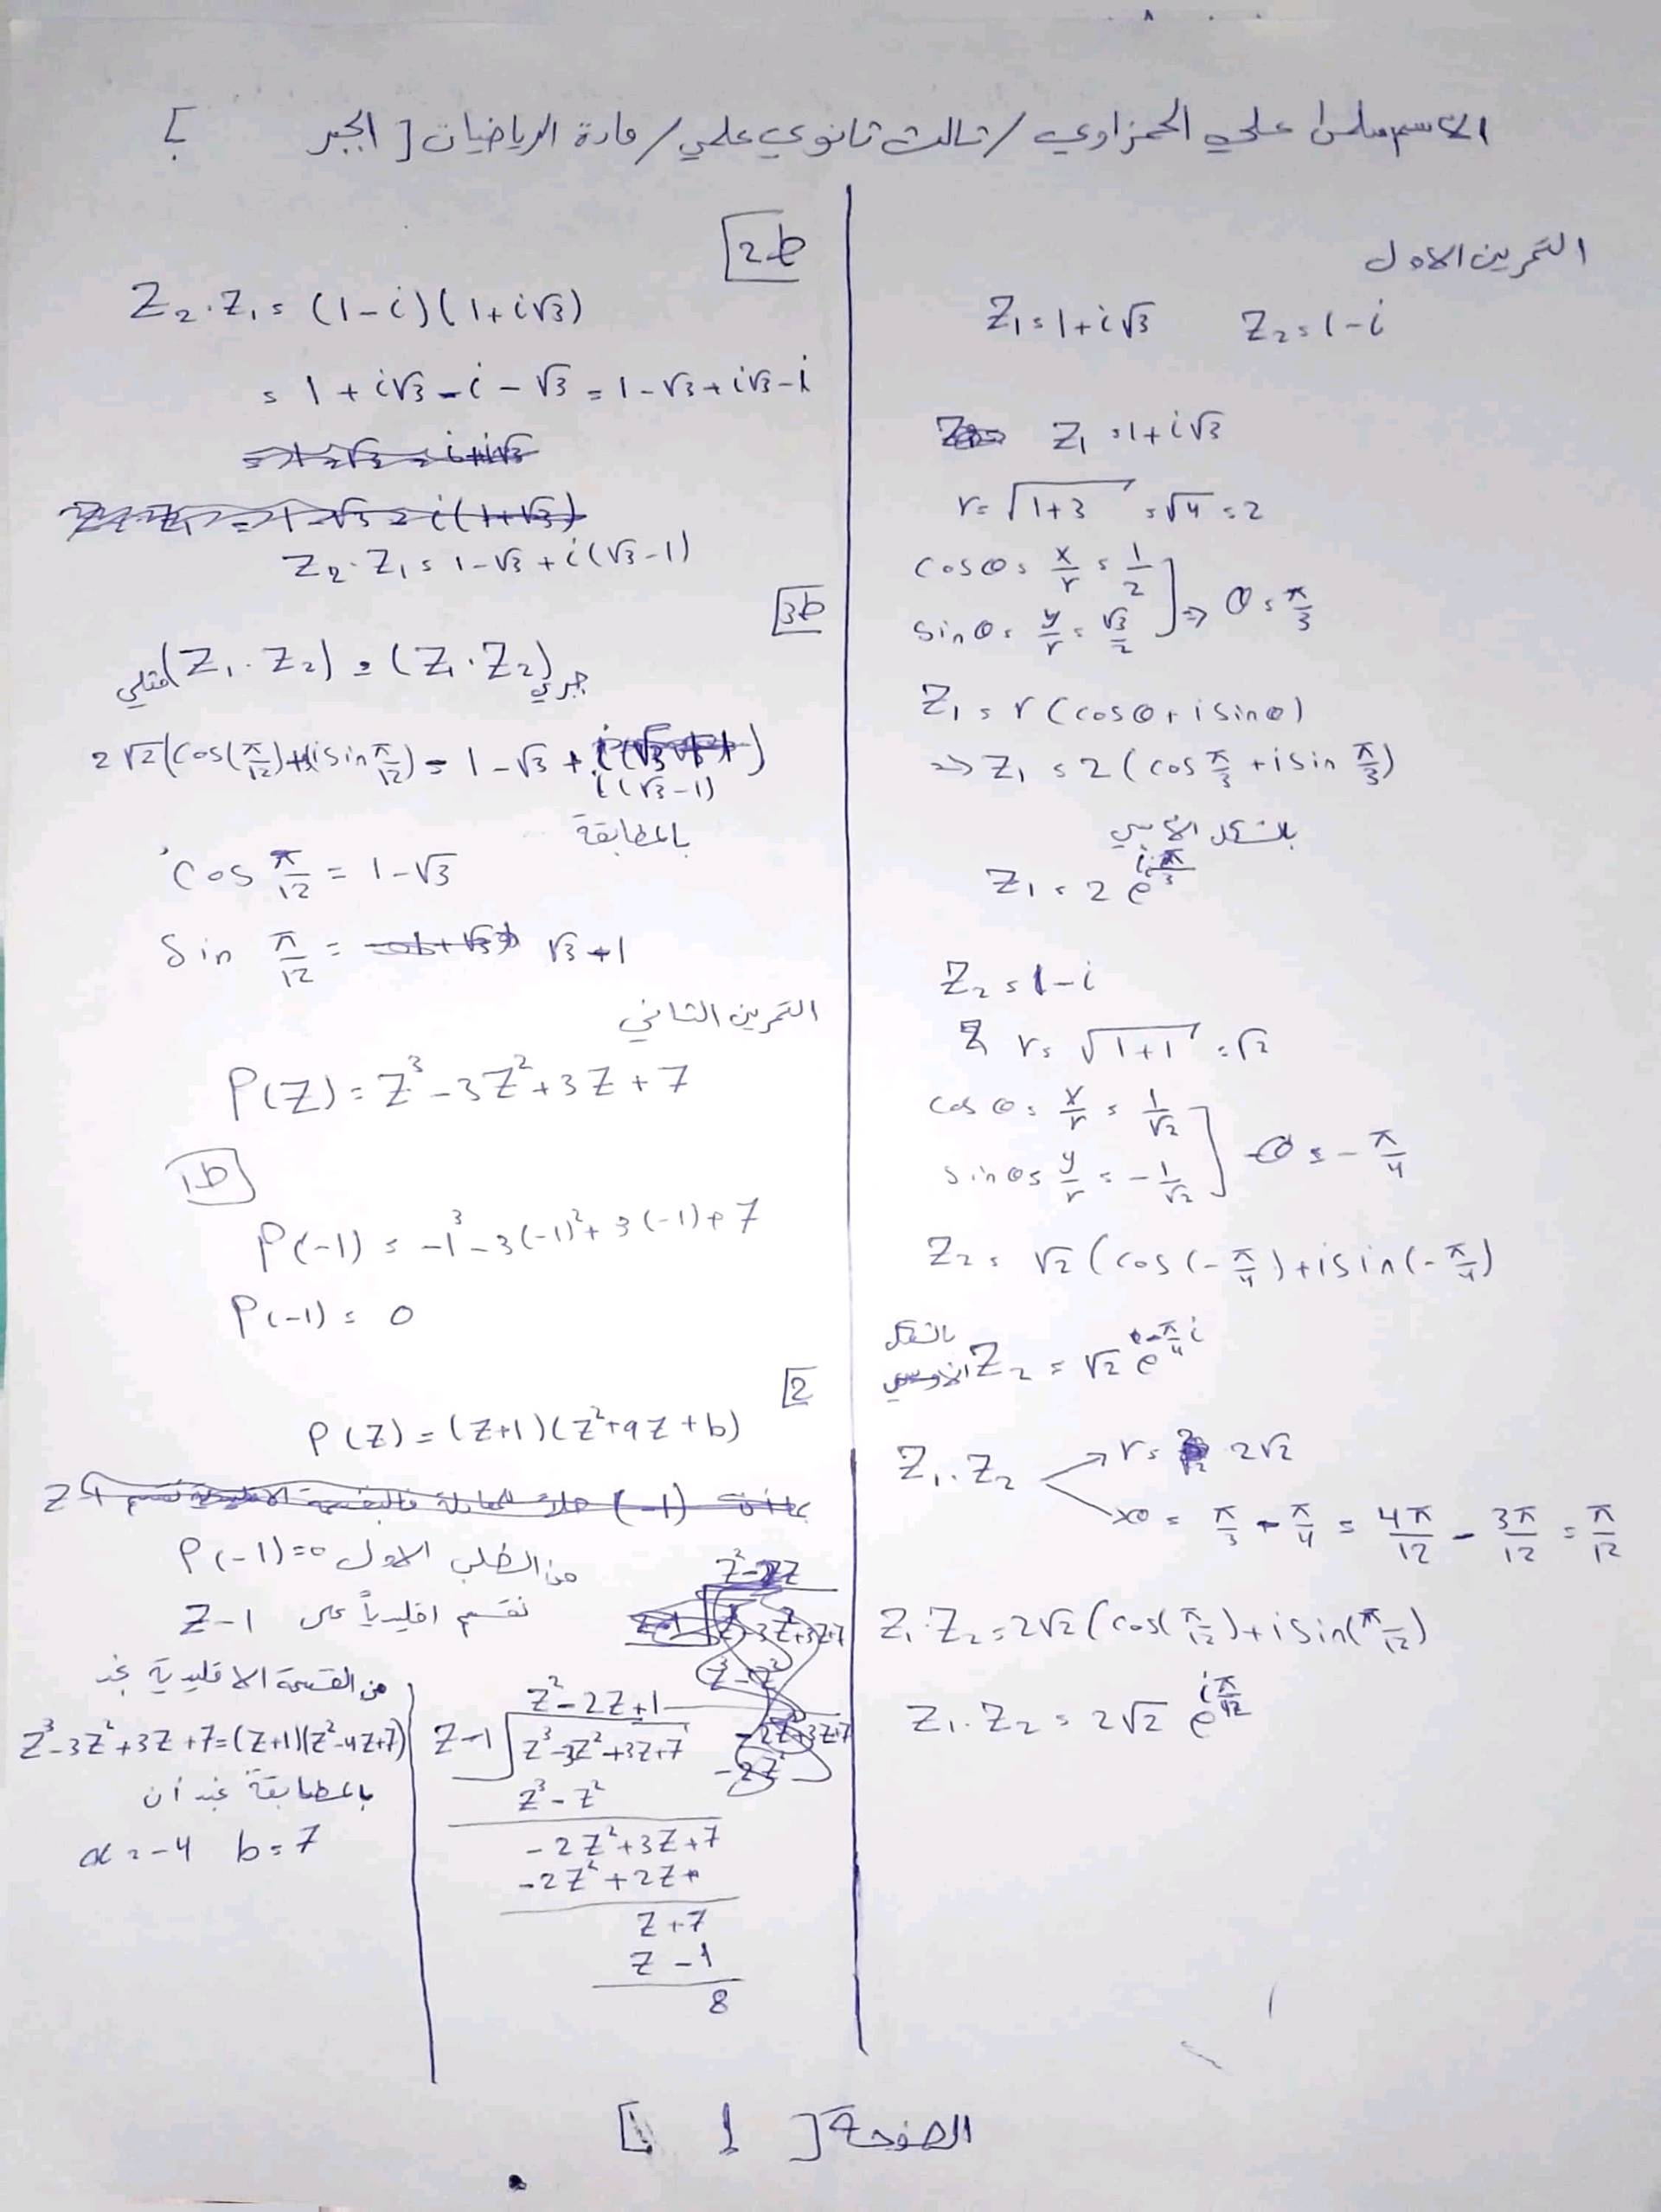 الاسم سلمى علي الحمزاوي / ثالث ثانوي علمي / مادة الرياضيات [ الجبر ]
التمرين الاول
Z₁ = 1+i√3 Z₂ = 1-i
Z₁ = 1+i√3
r = √(1+3) = √4 = 2
cosθ = x/r = 1/2
sinθ = y/r = √3/2 ] ⇒ θ = π/3
Z₁ = r(cosθ + i sinθ)
⇒ Z₁ = 2(cos π/3 + i sin π/3)
بالشكل الأسي
Z₁ = 2 e^(i π/3)
Z₂ = 1-i
r = √(1+1) = √2
cosθ = x/r = 1/√2
sinθ = y/r = -1/√2 ] θ = -π/4
Z₂ = √2 (cos(-π/4) + i sin(-π/4)
بالشكل
Z₂ = √2 e^(-π/4 i)
Z₁.Z₂ → r = 2√2
→ θ = π/3 - π/4 = 4π/12 - 3π/12 = π/12
Z₁.Z₂ = 2√2 (cos(π/12) + i sin(π/12)
Z₁.Z₂ = 2√2 e^(i π/12)
2b
Z₂.Z₁ = (1-i)(1+i√3)
= 1 + i√3 - i - √3 = 1-√3+i√3-i
Z₂.Z₁ = 1-√3+i(√3-1)
3b
(Z₁.Z₂) مثلي = (Z₁.Z₂) جبري
2√2(cos(π/12)+i sin π/12) = 1-√3 + i(√3-1)
بالمطابقة
cos π/12 = 1-√3
Sin π/12 = √3+1
التمرين الثاني
P(Z) = Z³-3Z²+3Z+7
1b
P(-1) = -1³-3(-1)²+3(-1)+7
P(-1) = 0
2
P(Z) = (Z+1)(Z²+aZ+b)
من الطلب الاول P(-1)=0
نقسم اقليدياً على Z-1
Z²-2Z+1
Z-1 Z³-3Z²+3Z+7
Z³-Z²
-2Z²+3Z+7
-2Z²+2Z
Z+7
Z-1
8
من القسمة الاقليدية نجد
Z³-3Z²+3Z+7=(Z+1)(Z²-4Z+7)
بالمطابقة نجد أن
a=-4 b=7
الصفحة [ 1 ]